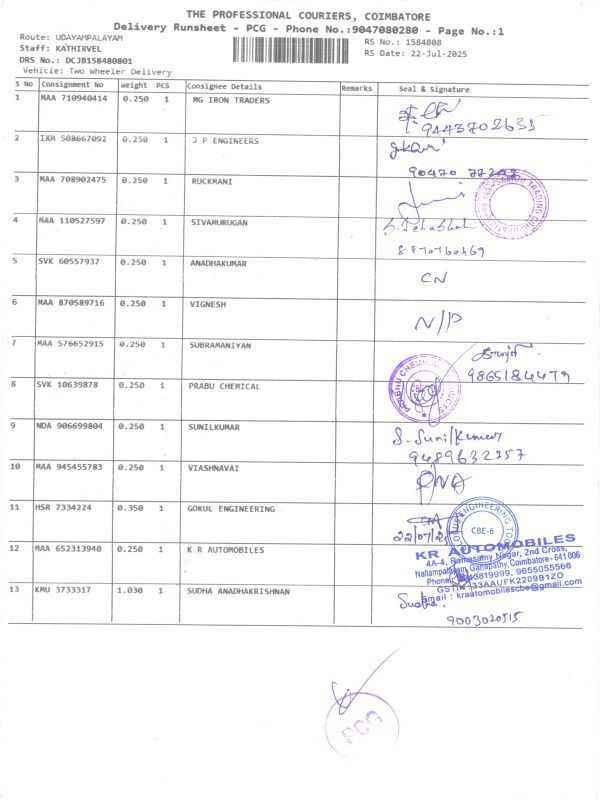 THE PROFESSIONAL COURIERS, COIMBATORE
Delivery Runsheet - PCG - Phone No.:9047080280 - Page No.:1
Route: UDAYAMPALAYAM
RS No.: 1584808
Staff: KATHIRVEL
RS Date: 22-Jul-2025
DRS No.: DCJB158480801
Vehicle: Two Wheeler Delivery
S No Consignment No Weight PCS Consignee Details Remarks Seal & Signature
1 MAA 710940414 0.250 1 MG IRON TRADERS
9443702631
2 IXM 508667092 0.250 1 J P ENGINEERS
90470 77247
3 MAA 708902475 0.250 1 RUCKMANI
4 MAA 110527597 0.250 1 SIVAMURUGAN
8870760469
5 SVK 60557937 0.250 1 ANADHAKUMAR CN
6 MAA 870589716 0.250 1 VIGNESH N/P
7 MAA 576652915 0.250 1 SUBRAMANIYAN
9865184479
8 SVK 10639878 0.250 1 PRABU CHEMICAL
PRABHU CHEMICAL PRODUCTS
9 NDA 906699804 0.250 1 SUNILKUMAR S. Sunilkumar
9489632357
10 MAA 945455783 0.250 1 VIASHNAVAI RNA
11 HSR 7334224 0.350 1 GOKUL ENGINEERING
22/07/25
CBE-6
12 MAA 652313940 0.250 1 K R AUTOMOBILES
KR AUTOMOBILES
4A-4, Ramasamy Nagar, 2nd Cross,
Nallampalayam, Ganapathy, Coimbatore-641006
9655055566
GSTIN :33AAUFK2209B1ZO
Email : krautomobilescbe@gmail.com
13 KMU 3733317 1.030 1 SUDHA ANADHAKRISHNAN Sudha
9003020515
PCG